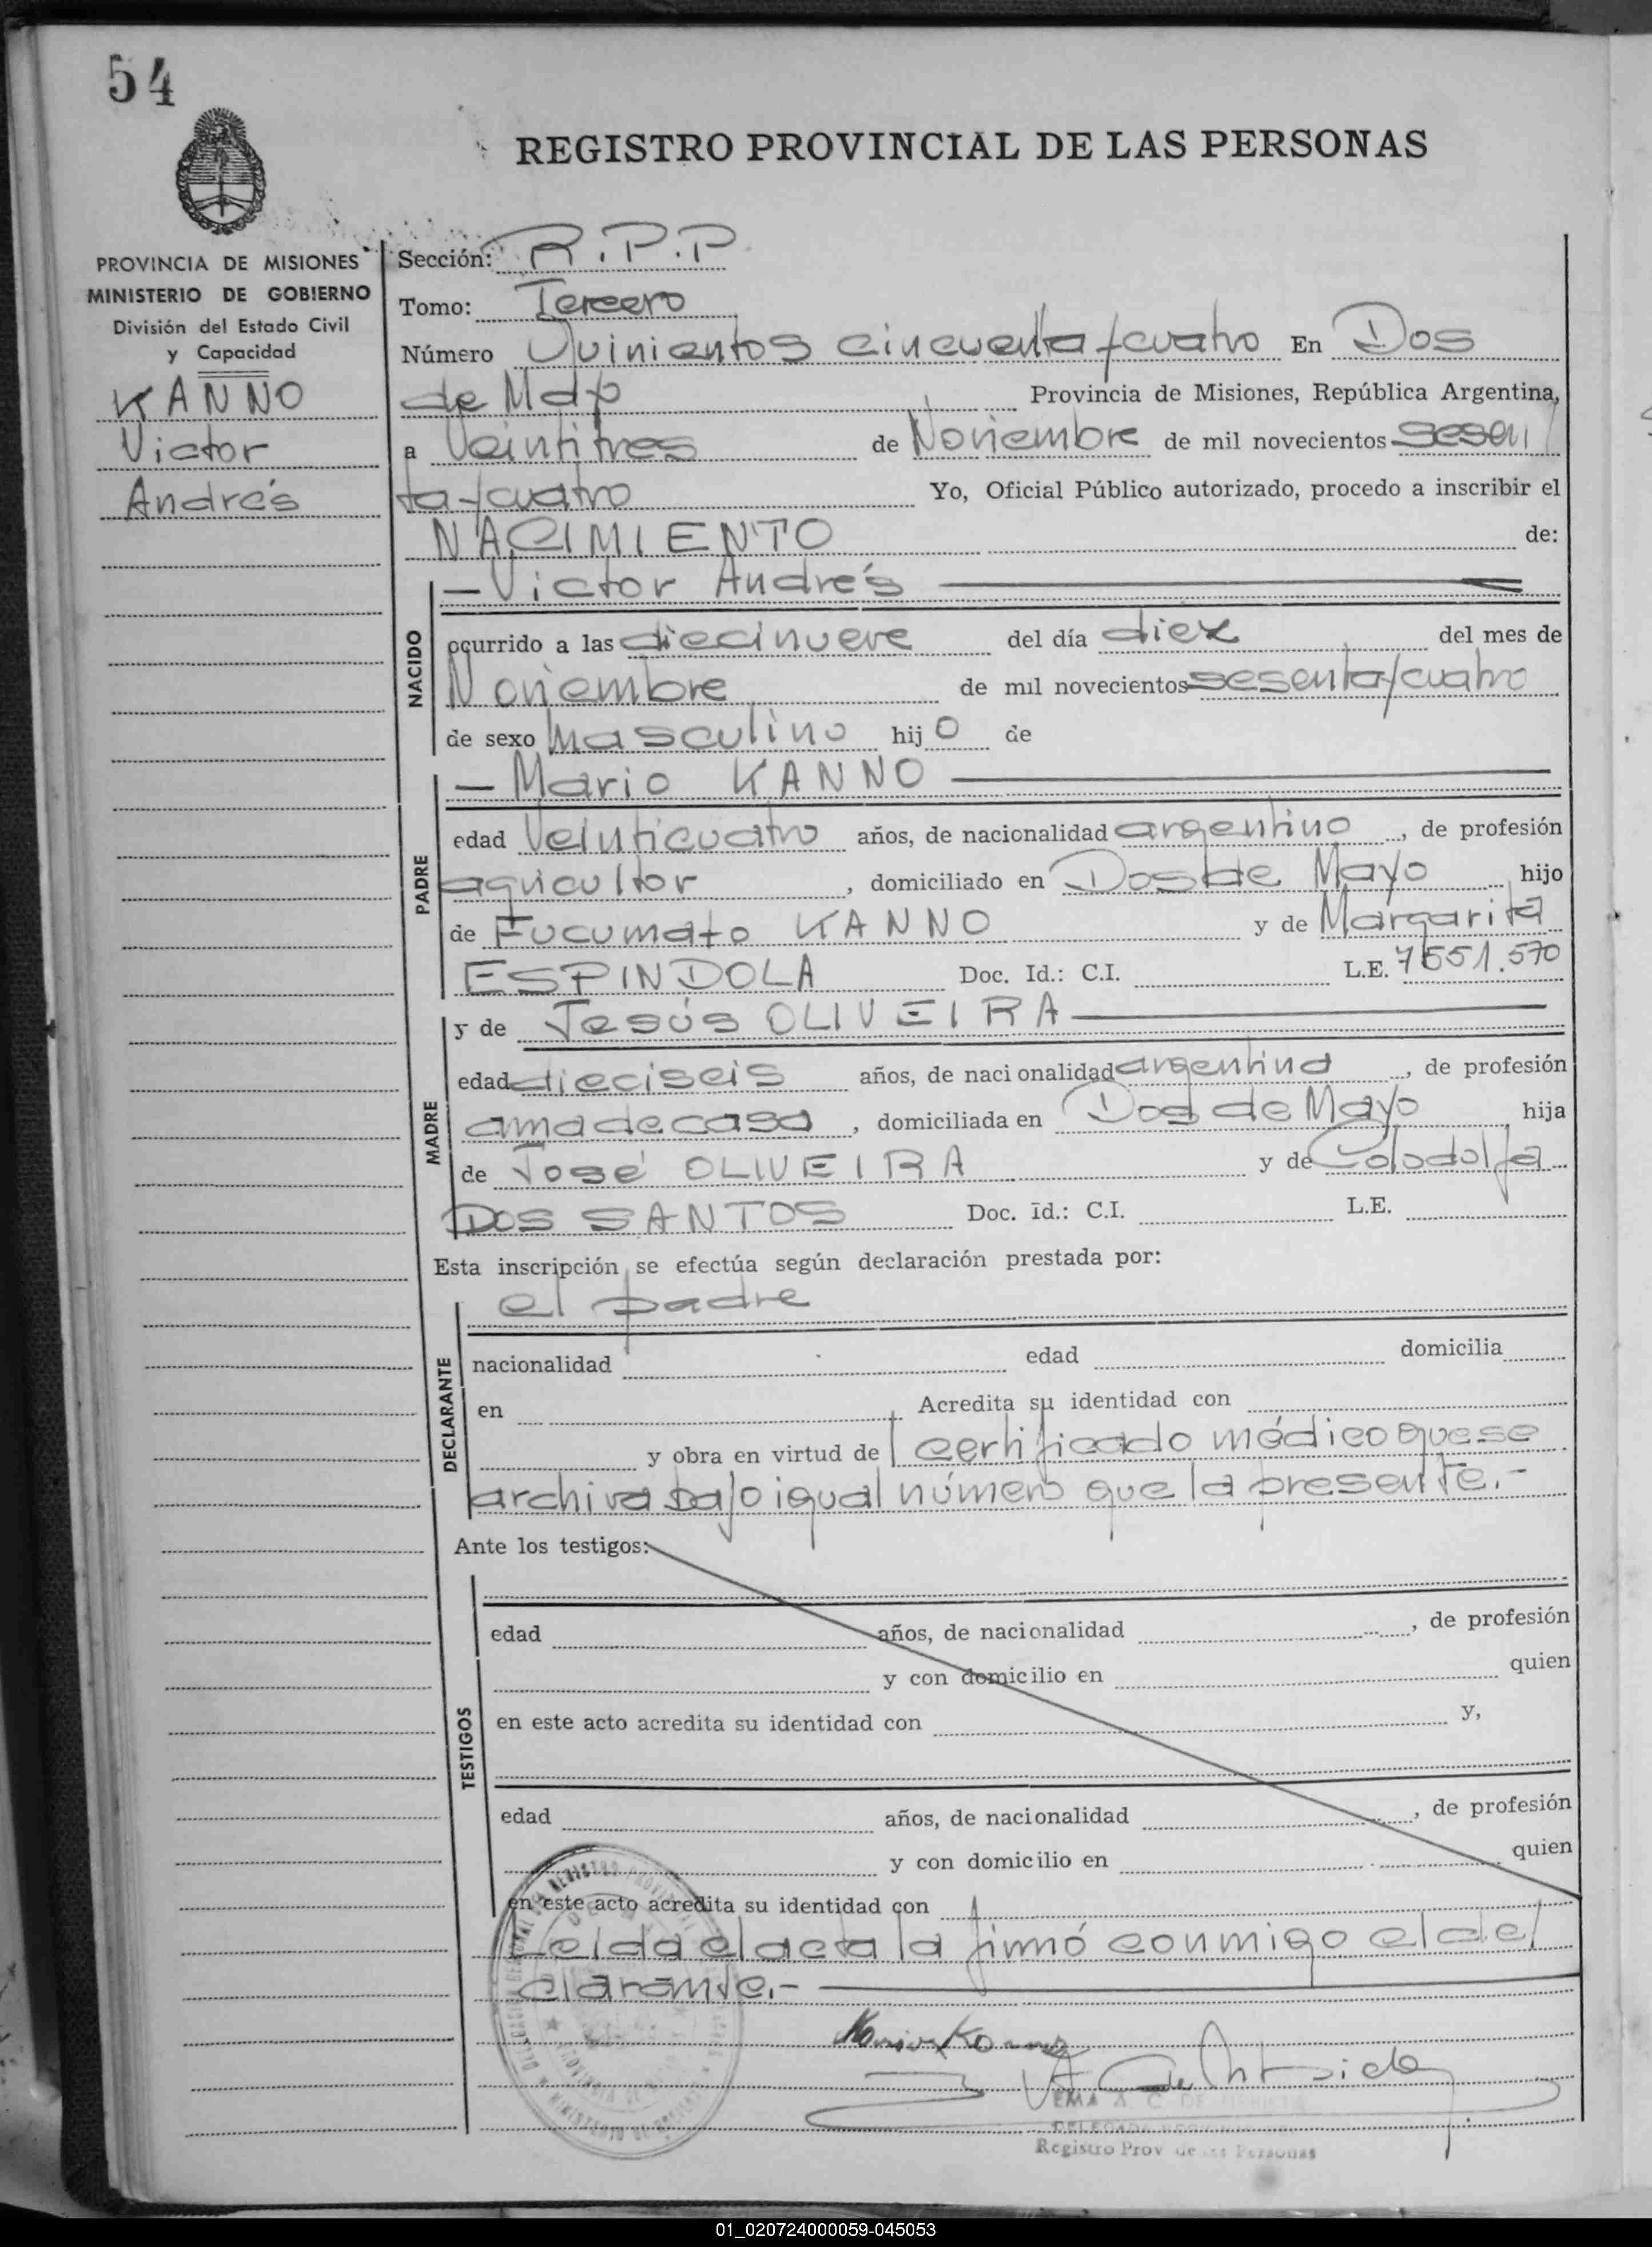 54
REGISTRO PROVINCIAL DE LAS PERSONAS
PROVINCIA DE MISIONES
MINISTERIO DE GOBIERNO
División del Estado Civil
y Capacidad
KANNO
Victor
Andrés
Sección: R.P.P
Tomo: Tercero
Número Quinientos cincuenta y cuatro En Dos
de Mayo Provincia de Misiones, República Argentina,
a Veintitres de Noviembre de mil novecientos sesen
ta y cuatro Yo, Oficial Público autorizado, procedo a inscribir el
NACIMIENTO de:
NACIDO
— Victor Andrés
ocurrido a las diecinueve del día diez del mes de
Noviembre de mil novecientos sesenta y cuatro
de sexo masculino hijo de
PADRE
— Mario KANNO
edad Veinticuatro años, de nacionalidad argentino, de profesión
agricultor, domiciliado en Dos de Mayo hijo
de Fucumato KANNO y de Margarita
ESPINDOLA Doc. Id.: C.I. L.E. 7551.570
MADRE
y de Jesús OLIVEIRA
edad dieciseis años, de nacionalidad argentina, de profesión
ama de casa, domiciliada en Dos de Mayo hija
de José OLIVEIRA y de
DOS SANTOS Doc. Id.: C.I. L.E.
Esta inscripción se efectúa según declaración prestada por:
DECLARANTE
el padre
nacionalidad edad domicilia
en Acredita su identidad con
y obra en virtud de certificado médico que se
archiva bajo igual número que la presente.-
Ante los testigos:
TESTIGOS
edad años, de nacionalidad , de profesión
y con domicilio en quien
en este acto acredita su identidad con y,
edad años, de nacionalidad , de profesión
y con domicilio en quien
en este acto acredita su identidad con
Leida el acta la firmó conmigo el de
clarante.-
Mario Kanno
EMA A. C. DE
DELEGADA
Registro Prov de las Personas
01_020724000059-045053